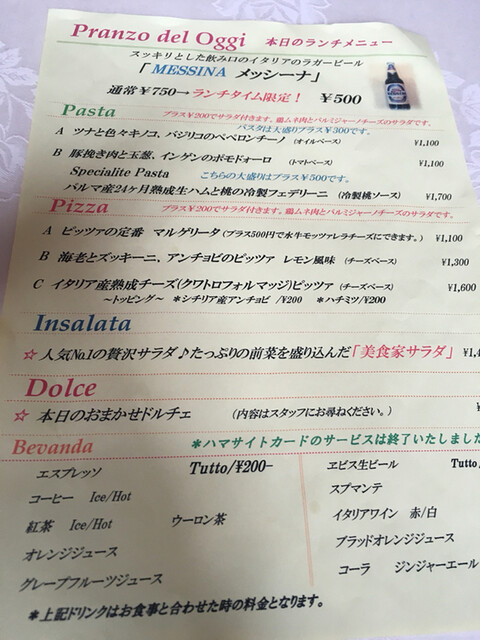 Pranzo del Oggi 本日のランチメニュー
スッキリとした飲み口のイタリアのラガービール
「MESSINA メッシーナ」
通常￥750→ランチタイム限定！ ￥500
Pasta プラス￥200でサラダ付きます。鶏ムネ肉とパルミジャーノチーズのサラダです。
パスタは大盛りプラス￥300です。
A ツナと色々キノコ、バジリコのペペロンチーノ (オイルベース) ¥1,100
B 豚挽き肉と玉葱、インゲンのポモドォーロ (トマトベース) ¥1,100
Specialite Pasta こちらの大盛りはプラス￥500です。
パルマ産24ヶ月熟成生ハムと桃の冷製フェデリーニ (冷製桃ソース) ¥1,700
Pizza プラス￥200でサラダ付きます。鶏ムネ肉とパルミジャーノチーズのサラダです。
A ピッツァの定番 マルゲリータ(プラス500円で水牛モッツァレラチーズにできます。) ¥1,100
B 海老とズッキーニ、アンチョビのピッツァ レモン風味 (チーズベース) ¥1,300
C イタリア産熟成チーズ(クワトロフォルマッジ)ピッツァ (チーズベース) ¥1,600
～トッピング～ ＊シチリア産アンチョビ /¥200 ＊ハチミツ/¥200
Insalata
☆人気No.1の贅沢サラダ♪たっぷりの前菜を盛り込んだ「美食家サラダ」
Dolce
☆ 本日のおまかせドルチェ (内容はスタッフにお尋ねください。)
Bevanda ＊ハマサイトカードのサービスは終了いたしました
エスプレッソ Tutto/¥200- ヱビス生ビール Tutto
コーヒー Ice/Hot スプマンテ
紅茶 Ice/Hot ウーロン茶 イタリアワイン 赤/白
オレンジジュース ブラッドオレンジジュース
グレープフルーツジュース コーラ ジンジャーエール
＊上記ドリンクはお食事と合わせた時の料金となります。